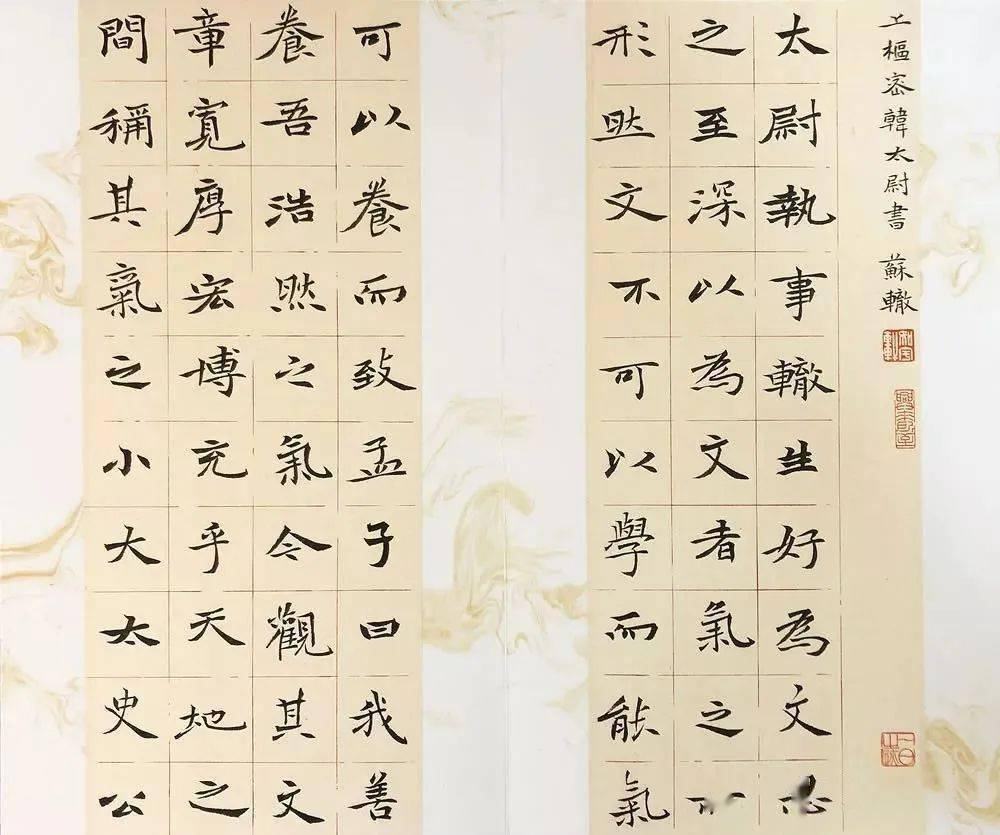 上樞密韓太尉書 蘇轍
太尉執事轍生好為文思
之至深以為文者氣之所
形然文不可以學而能氣
可以養而致孟子曰我善
養吾浩然之氣今觀其文
章寬厚宏博充乎天地之
間稱其氣之小大太史公